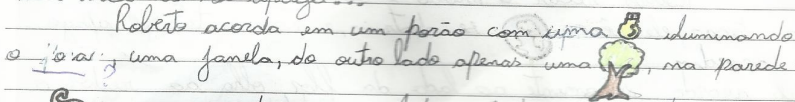 Roberto acorda em um porão com uma iluminando
o lugar, uma janela, do outro lado apenas uma, na parede